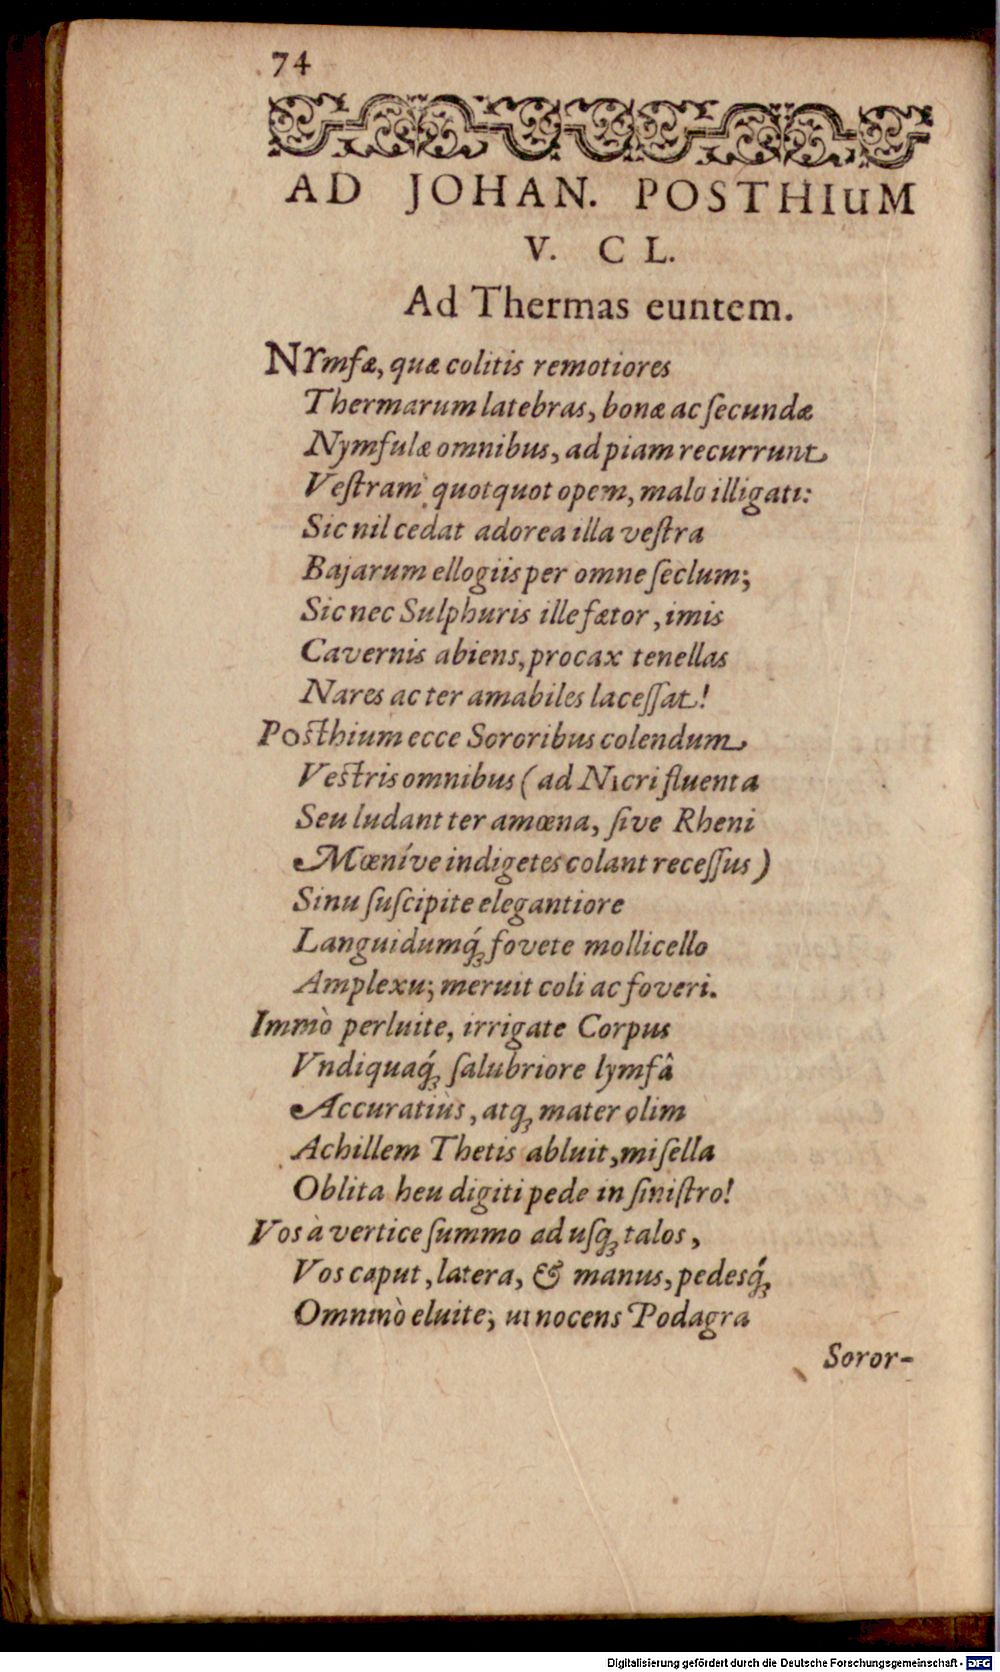 74
AD JOHAN. POSTHIuM
V. C L.
Ad Thermas euntem.
NYmfæ, quæ colitis remotiores
Thermarum latebras, bonæ ac ſecundæ
Nymfulæ omnibus, ad piam recurrunt
Veſtram quotquot opem, malo illigati:
Sic nil cedat adorea illa veſtra
Bajarum ellogiis per omne ſeclum;
Sic nec Sulphuris ille fœtor, imis
Cavernis abiens, procax tenellas
Nares ac ter amabiles laceſſat!
Poſthium ecce Sororibus colendum
Veſtris omnibus (ad Nicri fluenta
Seu ludant ter amœna, ſive Rheni
Mœníve indigetes colant receſſus)
Sinu ſuſcipite elegantiore
Languidumq́; fovete mollicello
Amplexu; meruit coli ac foveri.
Immò perluite, irrigate Corpus
Vndiquaq́; ſalubriore lymfâ
Accuratiùs, atq; mater olim
Achillem Thetis abluit, miſella
Oblita heu digiti pede in ſiniſtro!
Vos à vertice ſummo ad uſq; talos,
Vos caput, latera, & manus, pedesq́;
Omninò eluite; ut nocens Podagra
Soror-
Digitalisierung gefördert durch die Deutsche Forschungsgemeinschaft - DFG